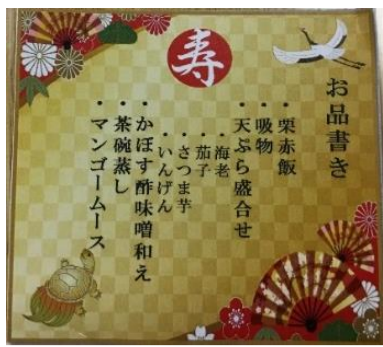 寿
お品書き
・栗赤飯
・吸物
・天ぷら盛合せ
・海老
・茄子
・さつま芋
・いんげん
・かぼす酢味噌和え
・茶碗蒸し
・マンゴームース